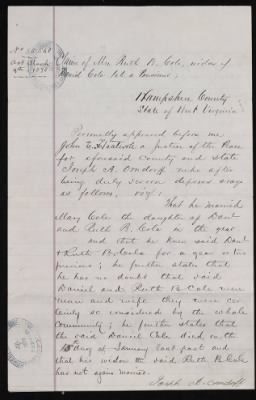 Claim of Mrs Ruth B. Cole, widow of
Daniel Cole for a Pension.
Hampshire County
State of West Virginia
Personally appeared before me
John E. a Justice of the Peace
for aforesaid County and State
Joseph A. Orndorff who after
being duly sworn deposes & says
as follows. viz:
That he married
Mary Cole the daughter of Danl
and Ruth B. Cole in the year
and that he knew said Danl
& Ruth B. Cole for a year or two
previous; he further states that
he has no doubt that said
Daniel and Ruth B Cole were
man and wife they were cer
tainly so considered by the whole
Community; he further states that
the said Daniel Cole died on the
day of January last past and
that his widow the said Ruth B. Cole
has not again married.
Joseph A. Orndorff